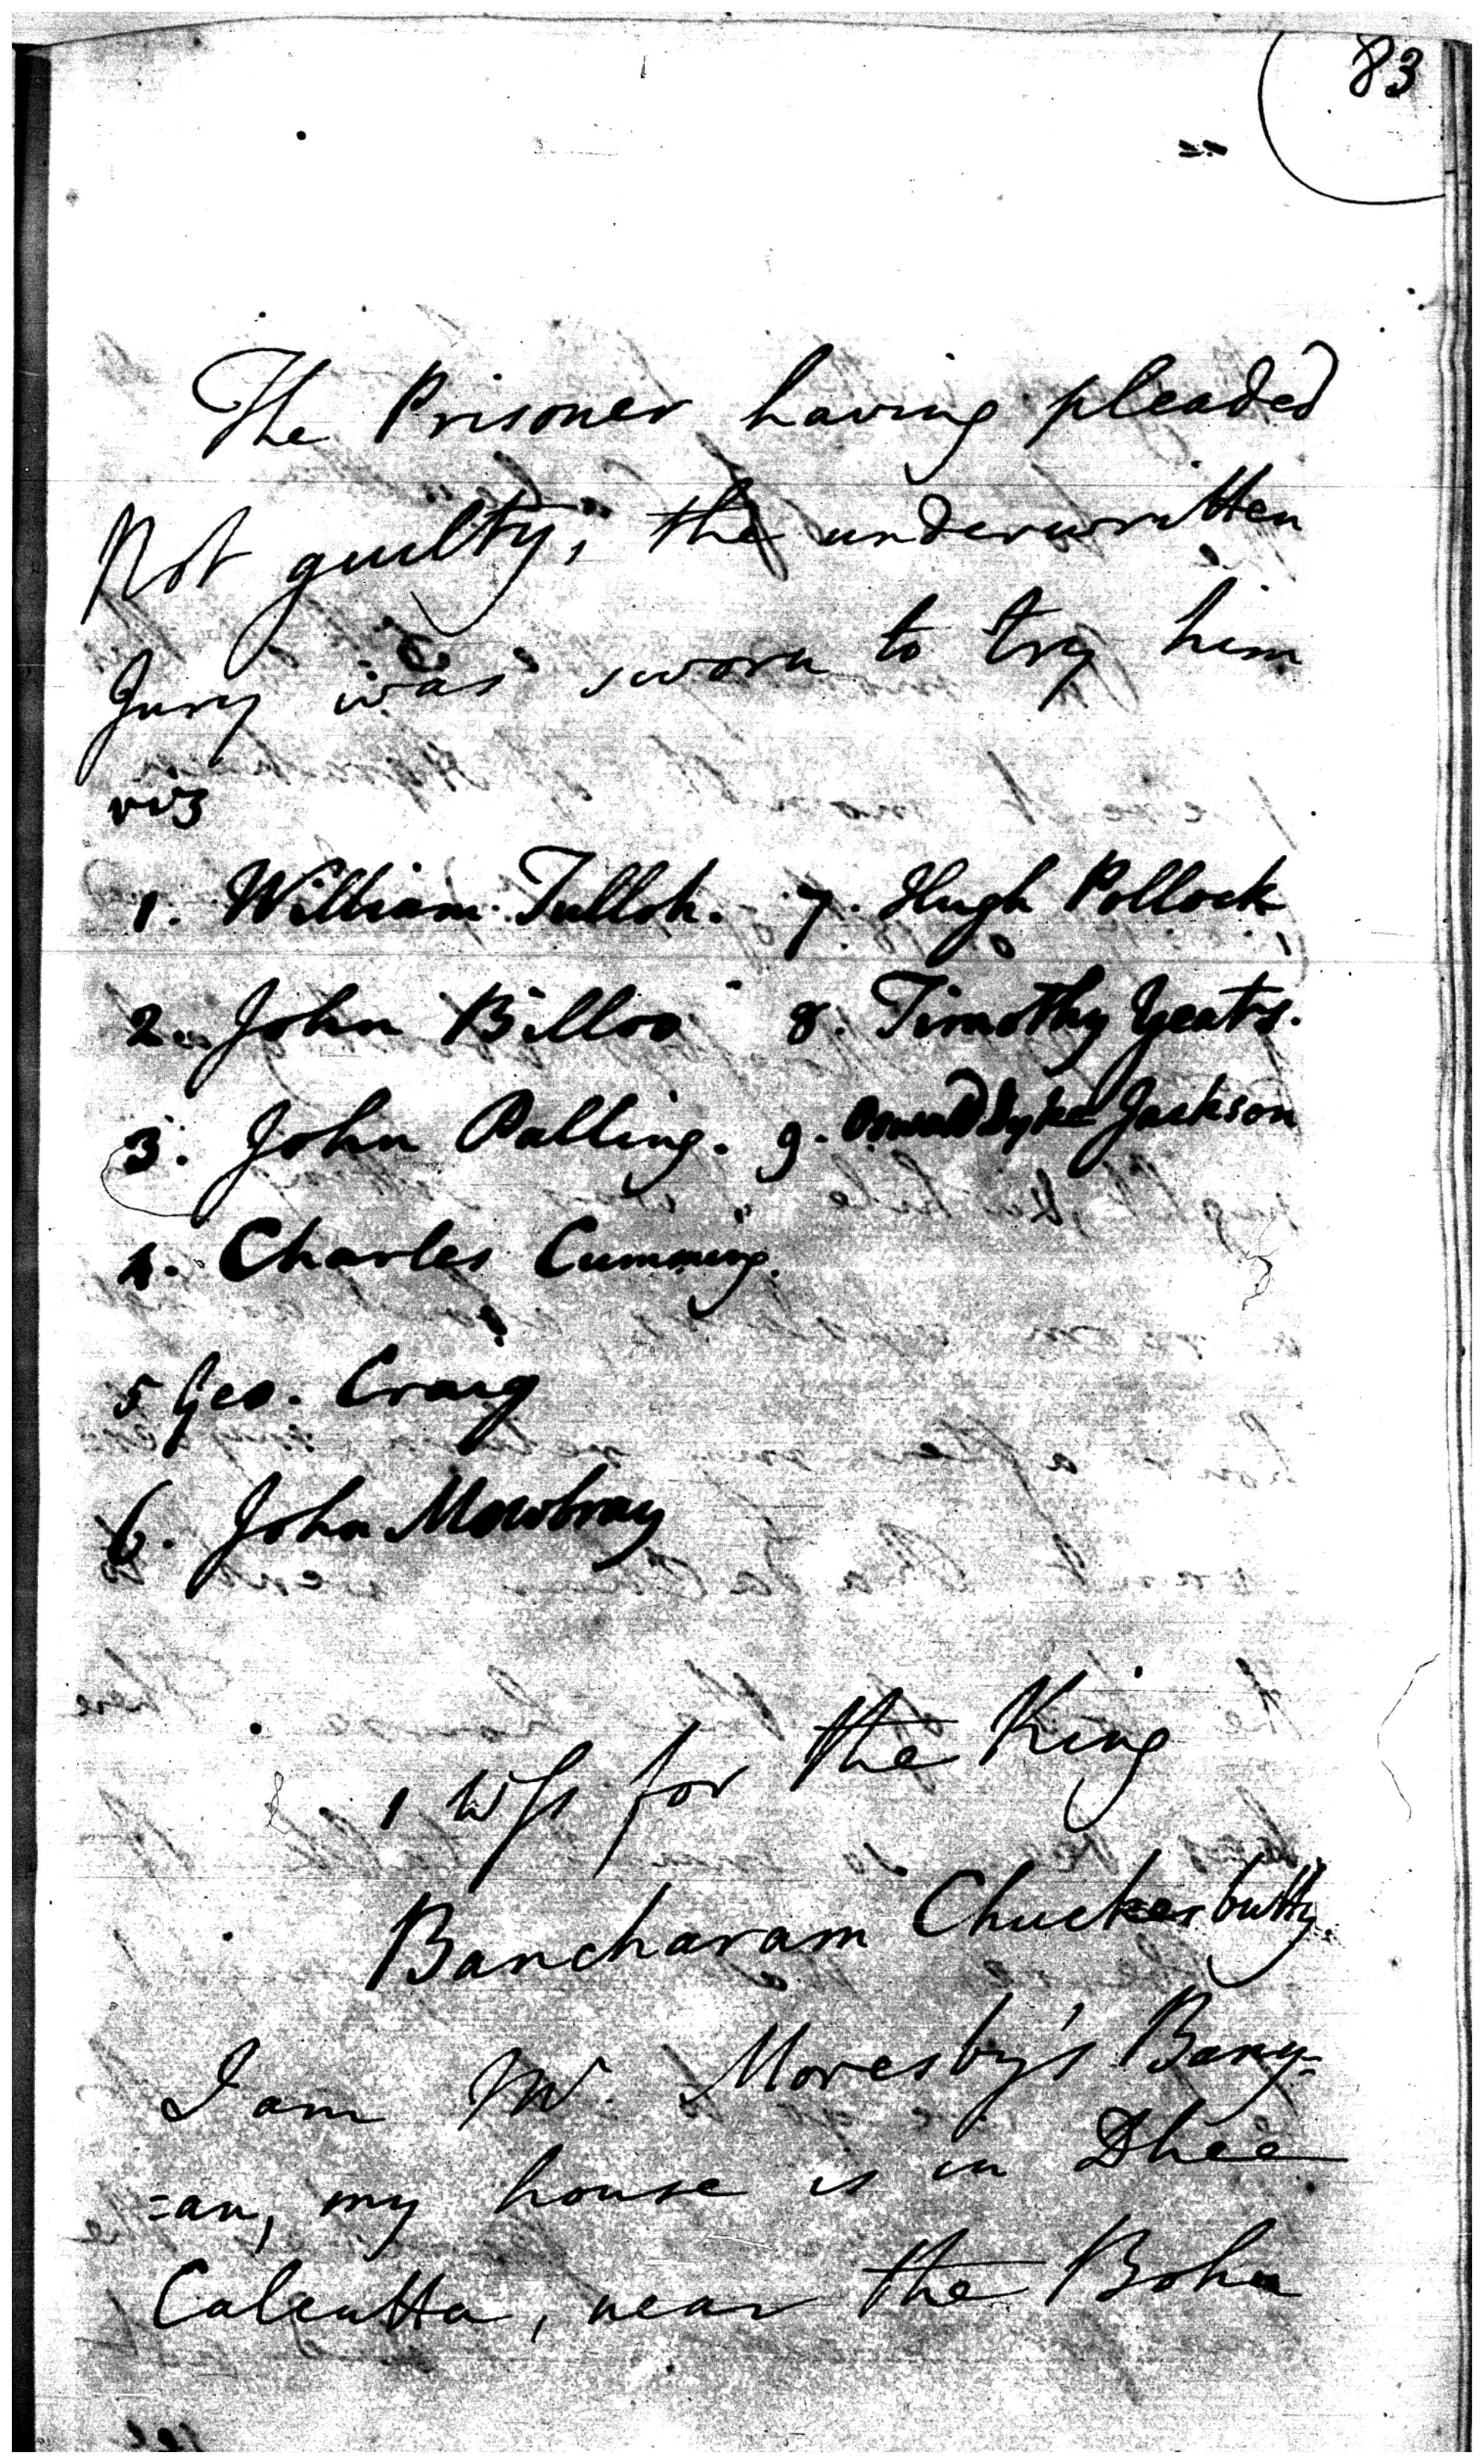 83
The Prisoner having pleaded
Not guilty, the underwritten
Jury was sworn to try him
viz
1. William Tulloh. 7. Hugh Pollock
2. John Billoo 8. Timothy Yeats.
3. John Palling. 9. Oswald Syke Jackson
4. Charles Cumming.
5 Geo. Craig
6. John Mowbray
1 Wss for the King
Bancharam Chuckerbutty.
I am Mr. Moresby's Bany-
=an, my house is in Dhee
Calcutta, near the Boha